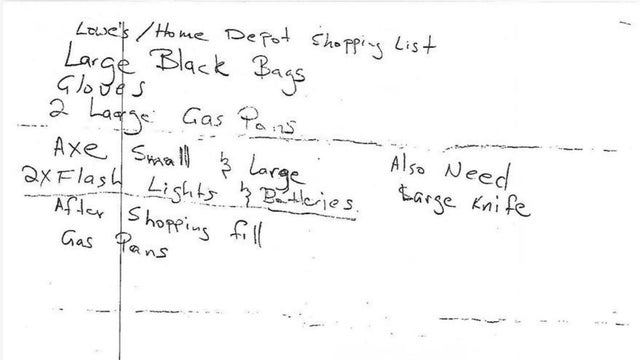 Lowe's/Home Depot Shopping List
Large Black Bags
Gloves
2 Large Gas Pans
Axe Small & Large
2x Flash Lights & Batteries
After Shopping fill
Gas Pans
Also Need
Large Knife